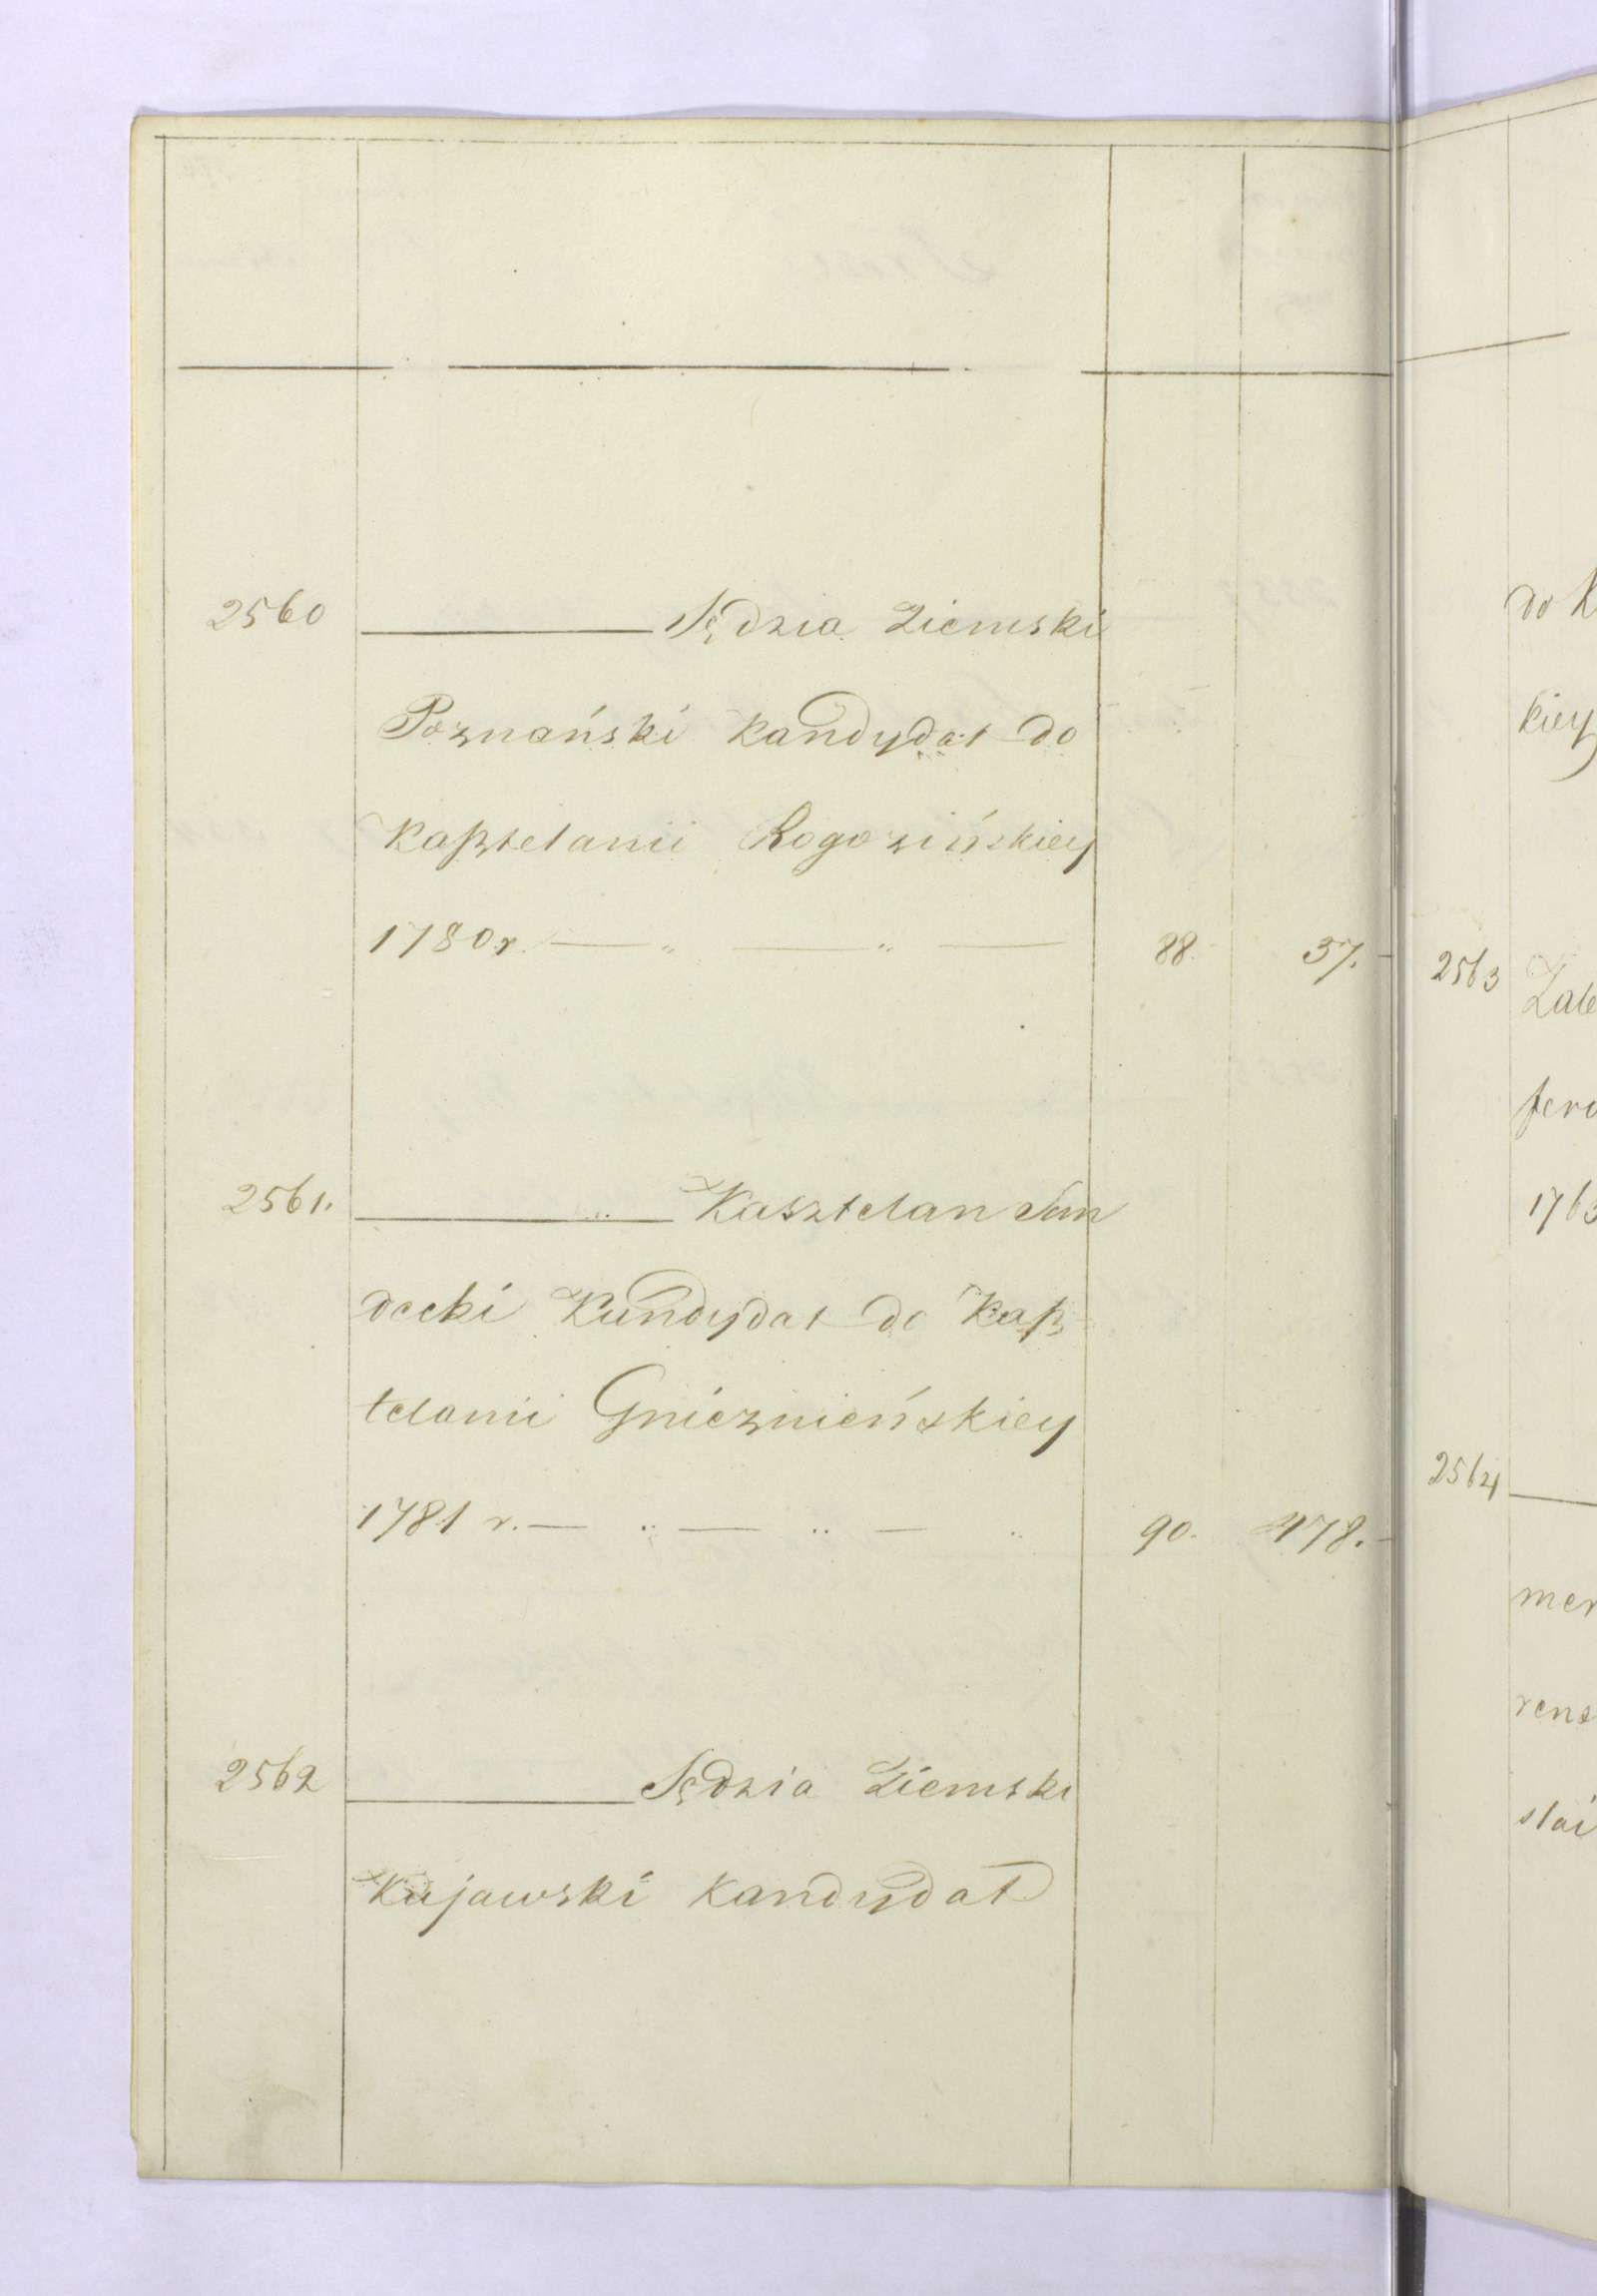 2560 Sędzia Ziemski
Poznański kandydat do
kaßtelanii Rogozińskiey
1780 r. 88. 37.
2561. Kasztelan San
decki Kandydat do Kaß
telanii Gnieznieńskiey
1781 r. 90. 478.
2562 Sędzia Ziemski
Kujawski kandydat
do K
kiey
2563 Zale
fero
1763
2564
mer
rens
stai